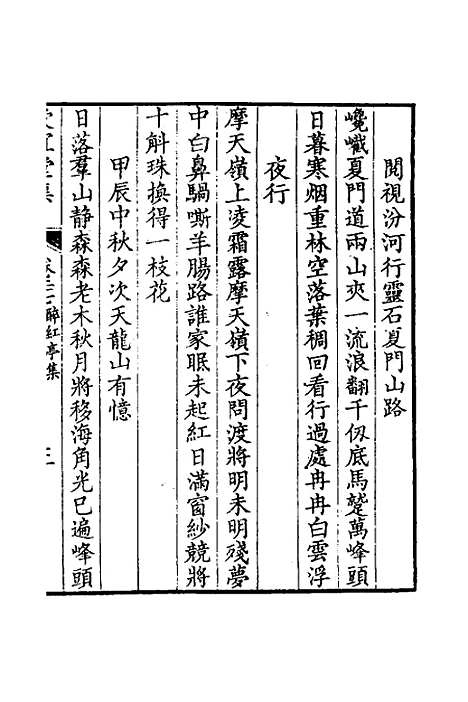 閱視汾河行靈石夏門山路
巉巇夏門道兩山夾一流浪翻千仭底馬蹩萬峰頭
日暮寒烟重林空落葉稠回看行過處冉冉白雲浮
夜行
摩天嶺上凌霜露摩天嶺下夜問渡將明未明殘夢
中白鼻騧嘶羊腸路誰家眠未起紅日滿窗紗競將
十斛珠換得一枝花
甲辰中秋夕次天龍山有憶
日落羣山靜森森老木秋月將移海角光已遍峰頭
堂集
醉紅亭集
三